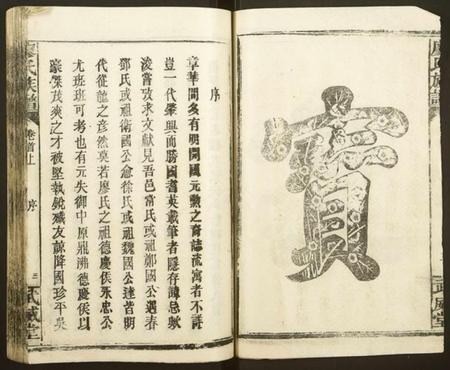 廖氏族譜
武威堂
寳
序
章華間多有明開國元勲之裔誌流寓者不詳
豈一代肇興而勝國耆英載筆者隱存諱忌歟
浚嘗攷求文獻見吾邑常氏或祖鄭國公遇春
鄧氏或祖衛國公愈徐氏或祖魏國公達皆明
代從龍之彥然莫若廖氏之祖德慶侯永忠公
尤班班可考也有元失御中原鼎沸德慶侯以
豪傑茂爽之才披堅執銳殲友諒降國珍平吳
廖氏族譜
卷首上
序
二
武威堂